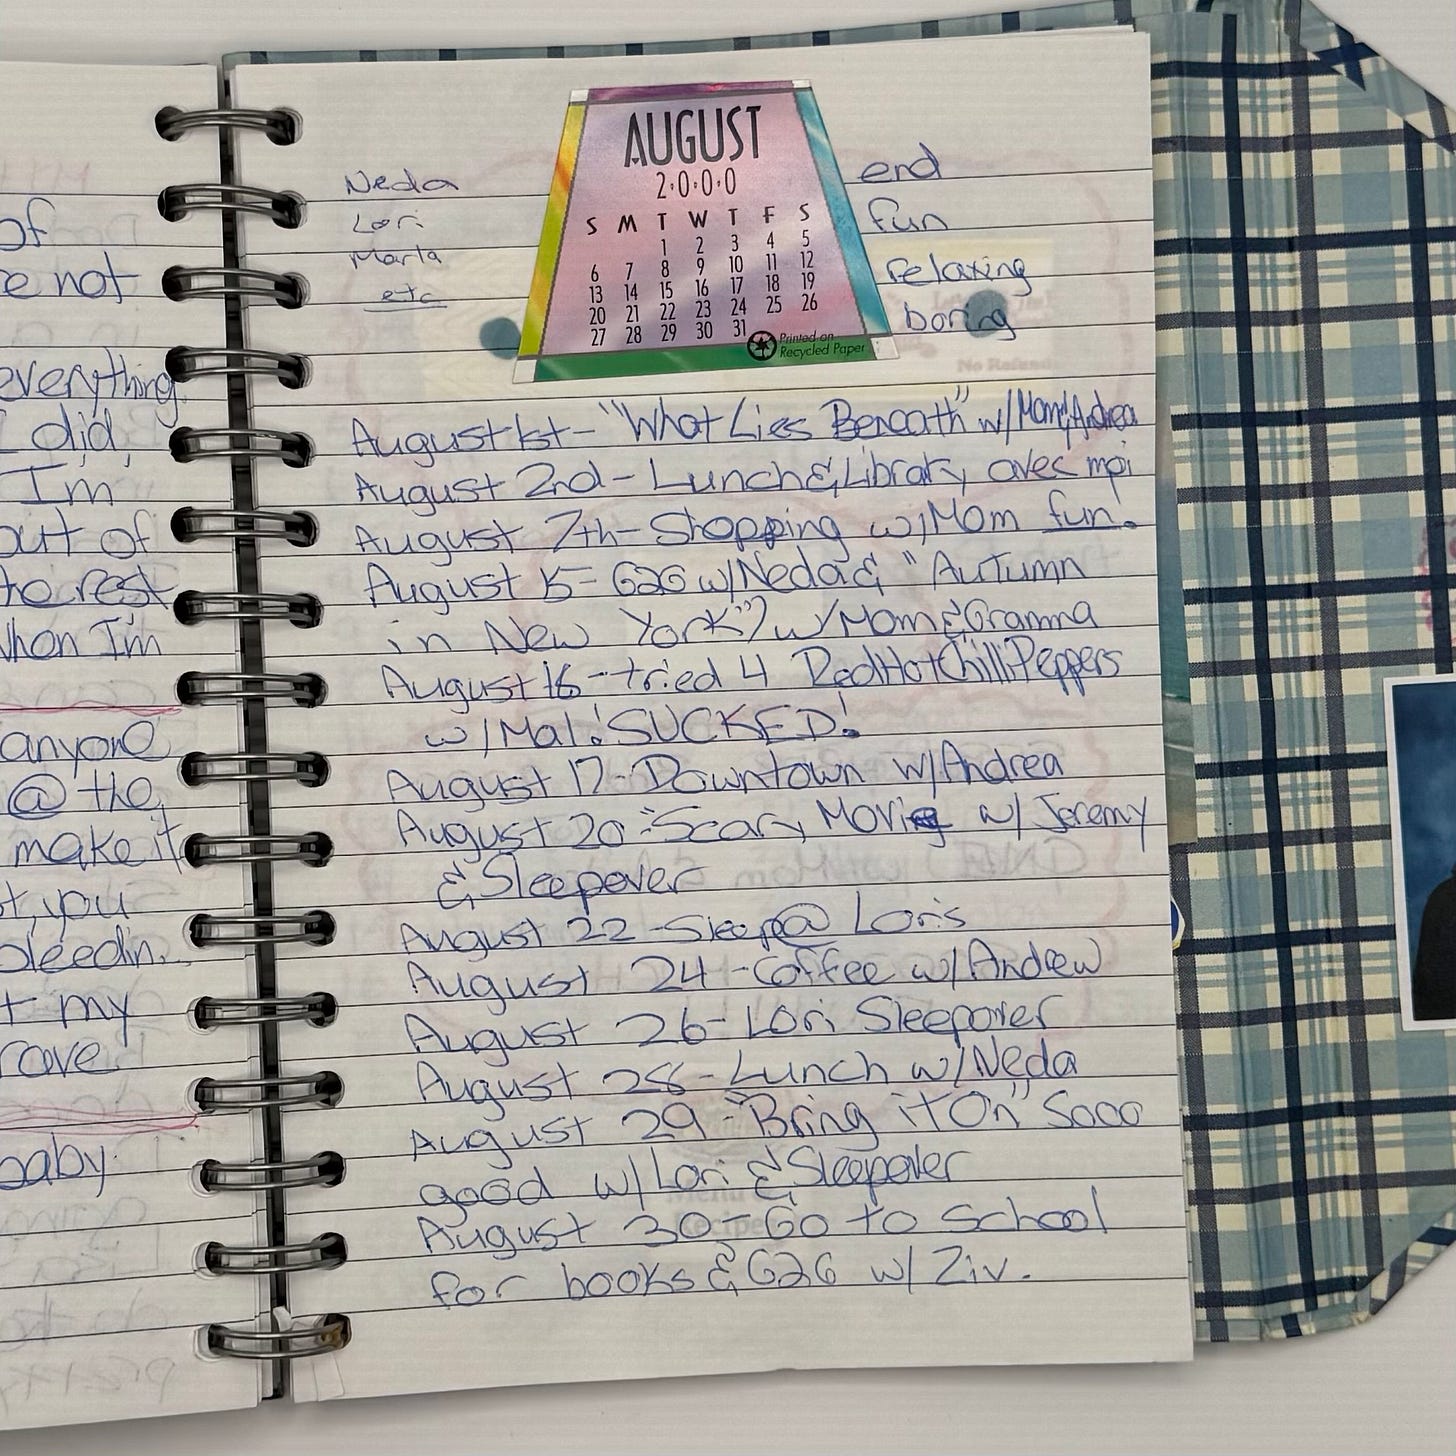 of
re not
everything
I did,
I'm
out of
to rest
when I'm
anyone
@ the
make it
t, you
bleedin...
t my
rave
baby
Neda
Lori
Marla
etc
AUGUST
2·0·0·0
S M T W T F S
1 2 3 4 5
6 7 8 9 10 11 12
13 14 15 16 17 18 19
20 21 22 23 24 25 26
27 28 29 30 31
Printed on
Recycled Paper
end
fun
relaxing
boring
No Refund
August 1st- "What Lies Beneath" w/Mom,Andrea
August 2nd- Lunch & Library avec moi
August 7th- Shopping w/Mom fun.
August 15- 626 w/Neda & "Autumn
in New York" w/Mom & Gramma
August 16-tried 4 RedHotChilliPeppers
w/Mal! SUCKED!
August 17-Downtown w/Andrea
August 20-"Scary Movie w/ Jeremy
& Sleepover
August 22-Sleep@ Loris
August 24-Coffee w/Andrew
August 26-Lori Sleepover
August 28-Lunch w/Neda
August 29-"Bring it On" Sooo
good w/Lori & Sleepover
August 30-Go to School
for books & 626 w/ Ziv.